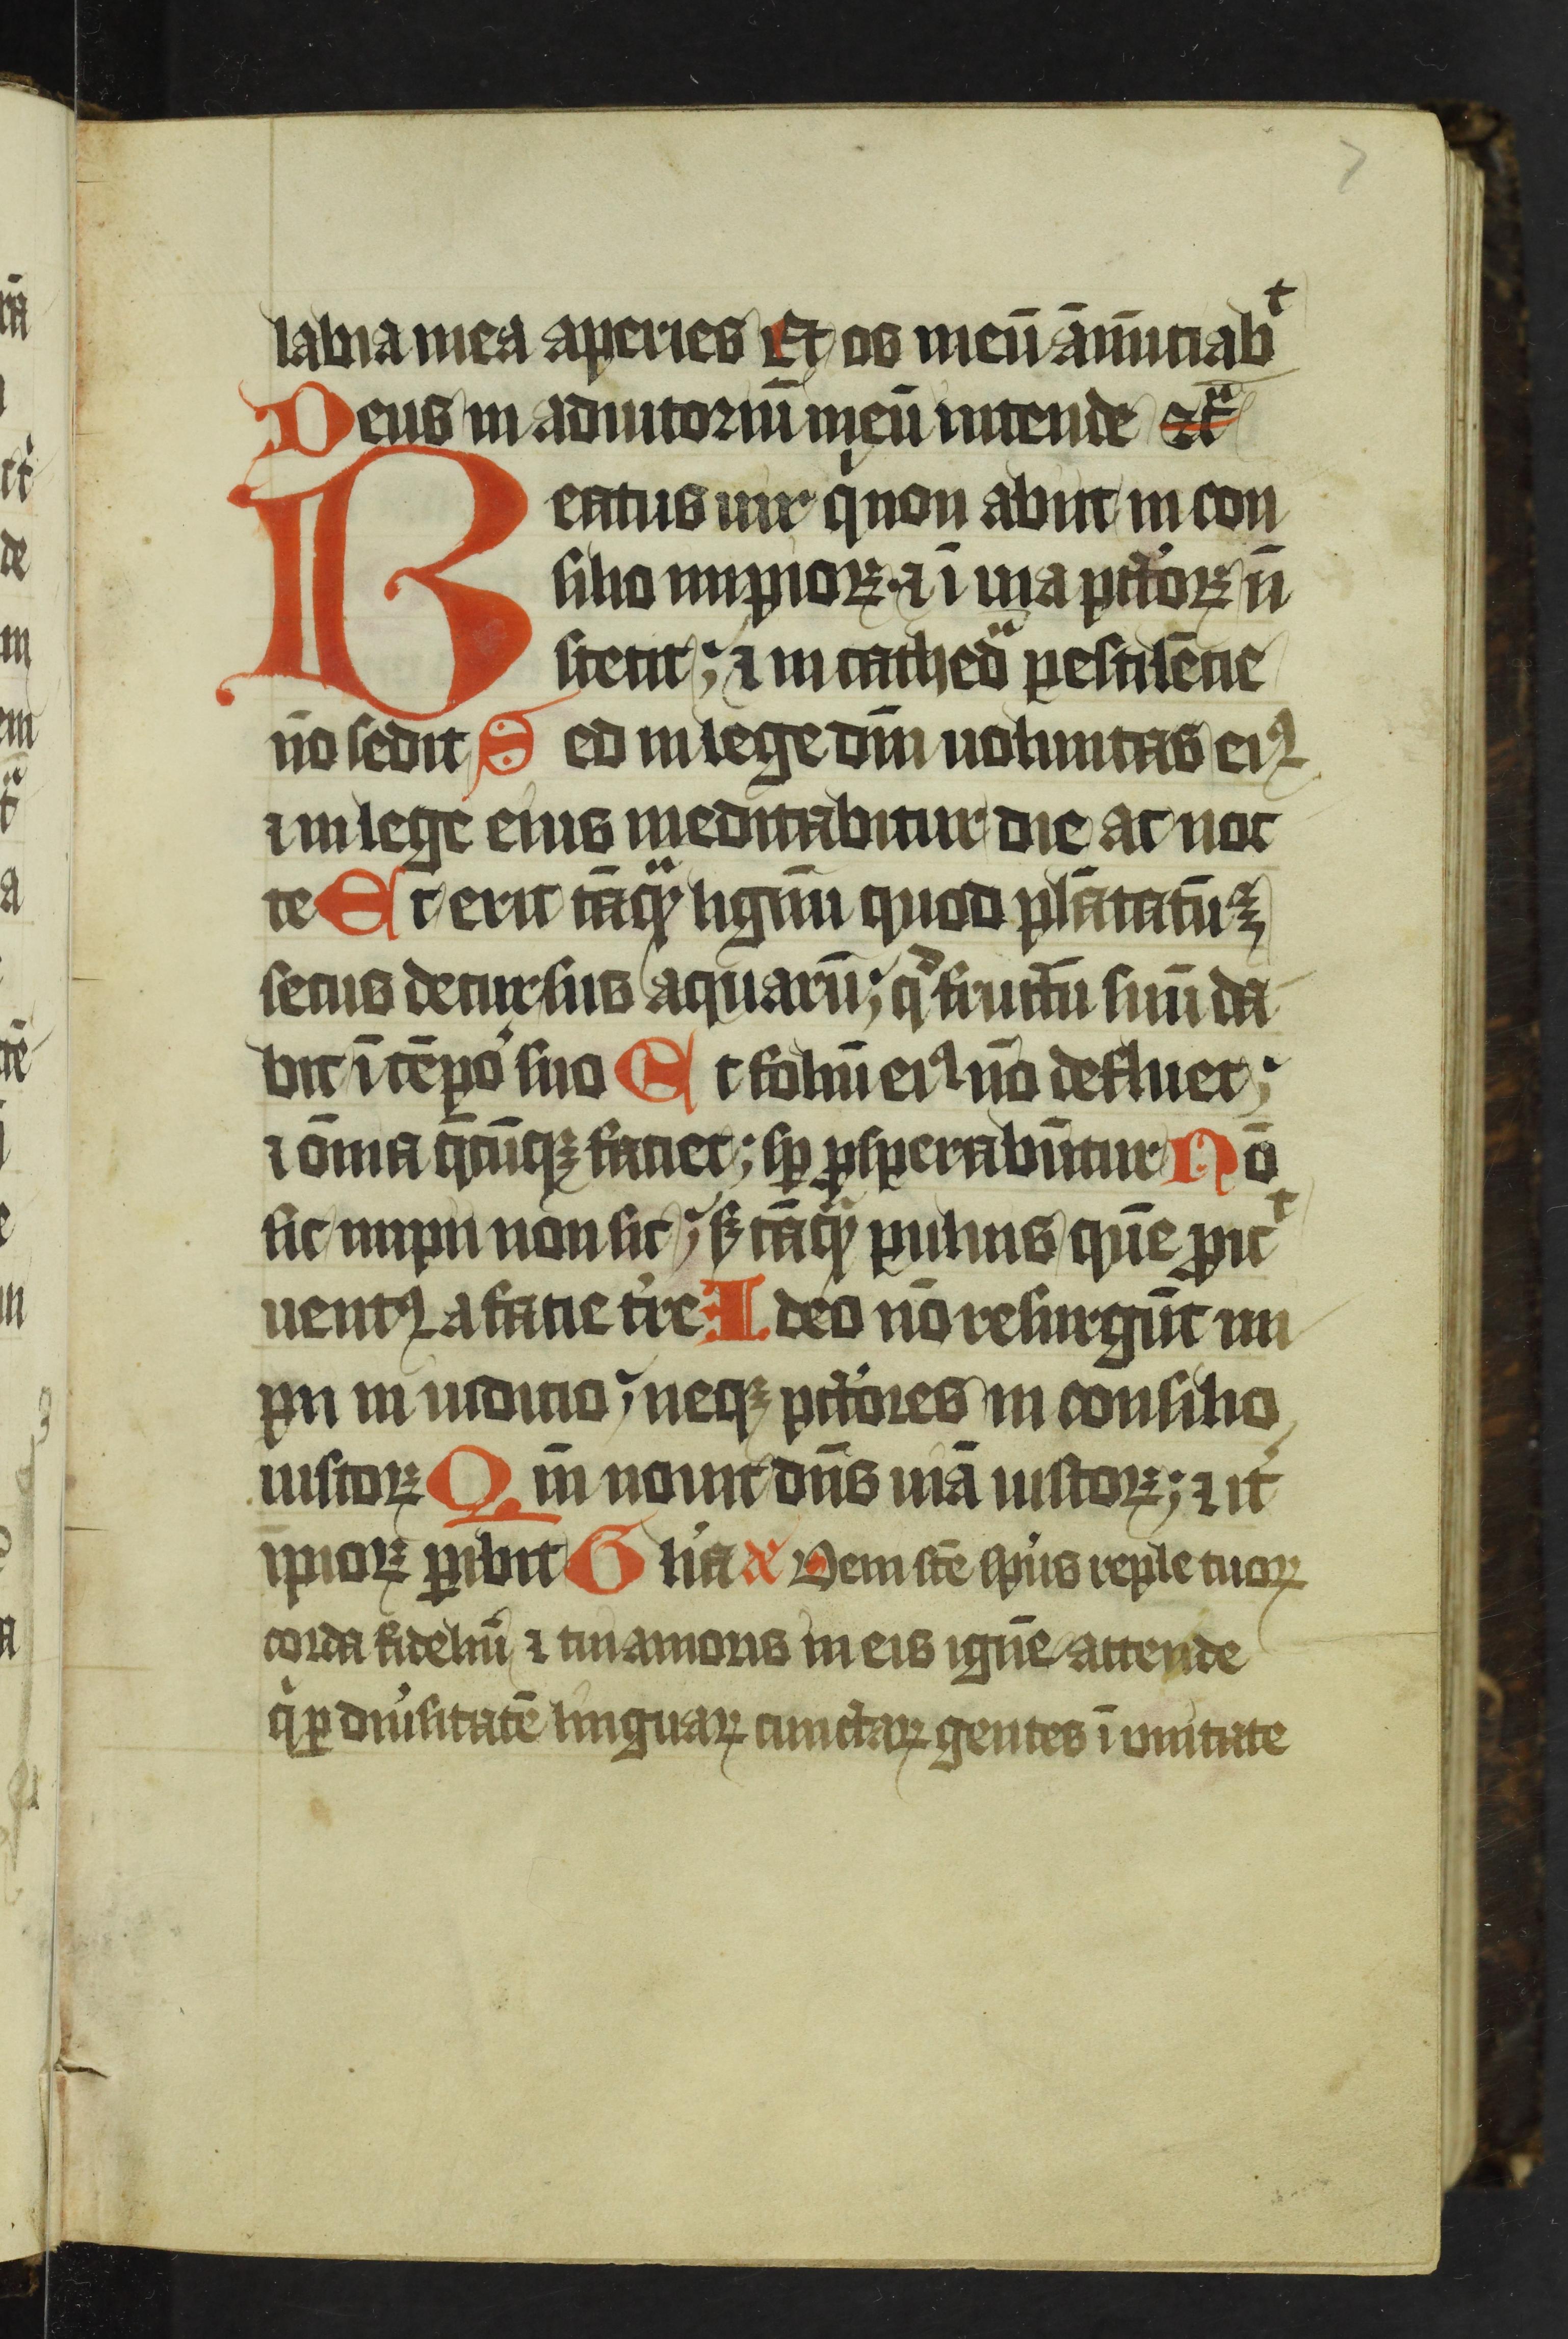 7
labia mea aperies Et os meū ānūciabᵗ
Deus in adiutoriū meū intende ⁊cᷓ
Beatus uir qͥ non abiit in con
silio impioꝝ ⁊ ī uia pctōꝝ nͫ
stetit; ⁊ in cathedᷓ pestilēcie
nō sedit Sed in lege dm̄i uoluntas eiꝰ
⁊ in lege eius meditabitur die ac noc
te Et erit tāqᷓ lignū quod plātatū ē
secus decursus aquarū; qᵈ fructū suū da
bit ī tēpo᷑ suo Et foliū eiꝰ nō defluet;
⁊ om̄ia q̄cūqꝫ faciet; sp̄ ꝓsperabūtur Nō
sic impii non sic; sꝫ tāqᷓ puluis quē ꝓicᵗ
uentꝰ a facie t᷑re Ideo nō resurgūt im
pii in iudicio; neqꝫ pctōres in consilio
iustoꝝ Qm̄ nouit dn̄s uiā iustoꝝ; ⁊ it᷑
īpioꝝ ꝑibit Gli᷑a Veni sc̄e sp̄us reple tuoꝝ
corda fideliū ⁊ tui amoris in eis ignē accende
qͥ ꝑ diu᷑sitatē linguaꝝ cunctaꝝ gentes ī unitate